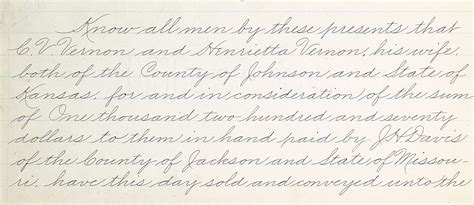 Know all men by these presents that
C. V. Vernon and Henrietta Vernon, his wife,
both of the County of Johnson and State of
Kansas, for and in consideration of the sum
of One thousand two hundred and seventy
dollars to them in hand paid by J. H. Davis
of the County of Jackson and State of Missou-
ri, have this day sold and conveyed unto the